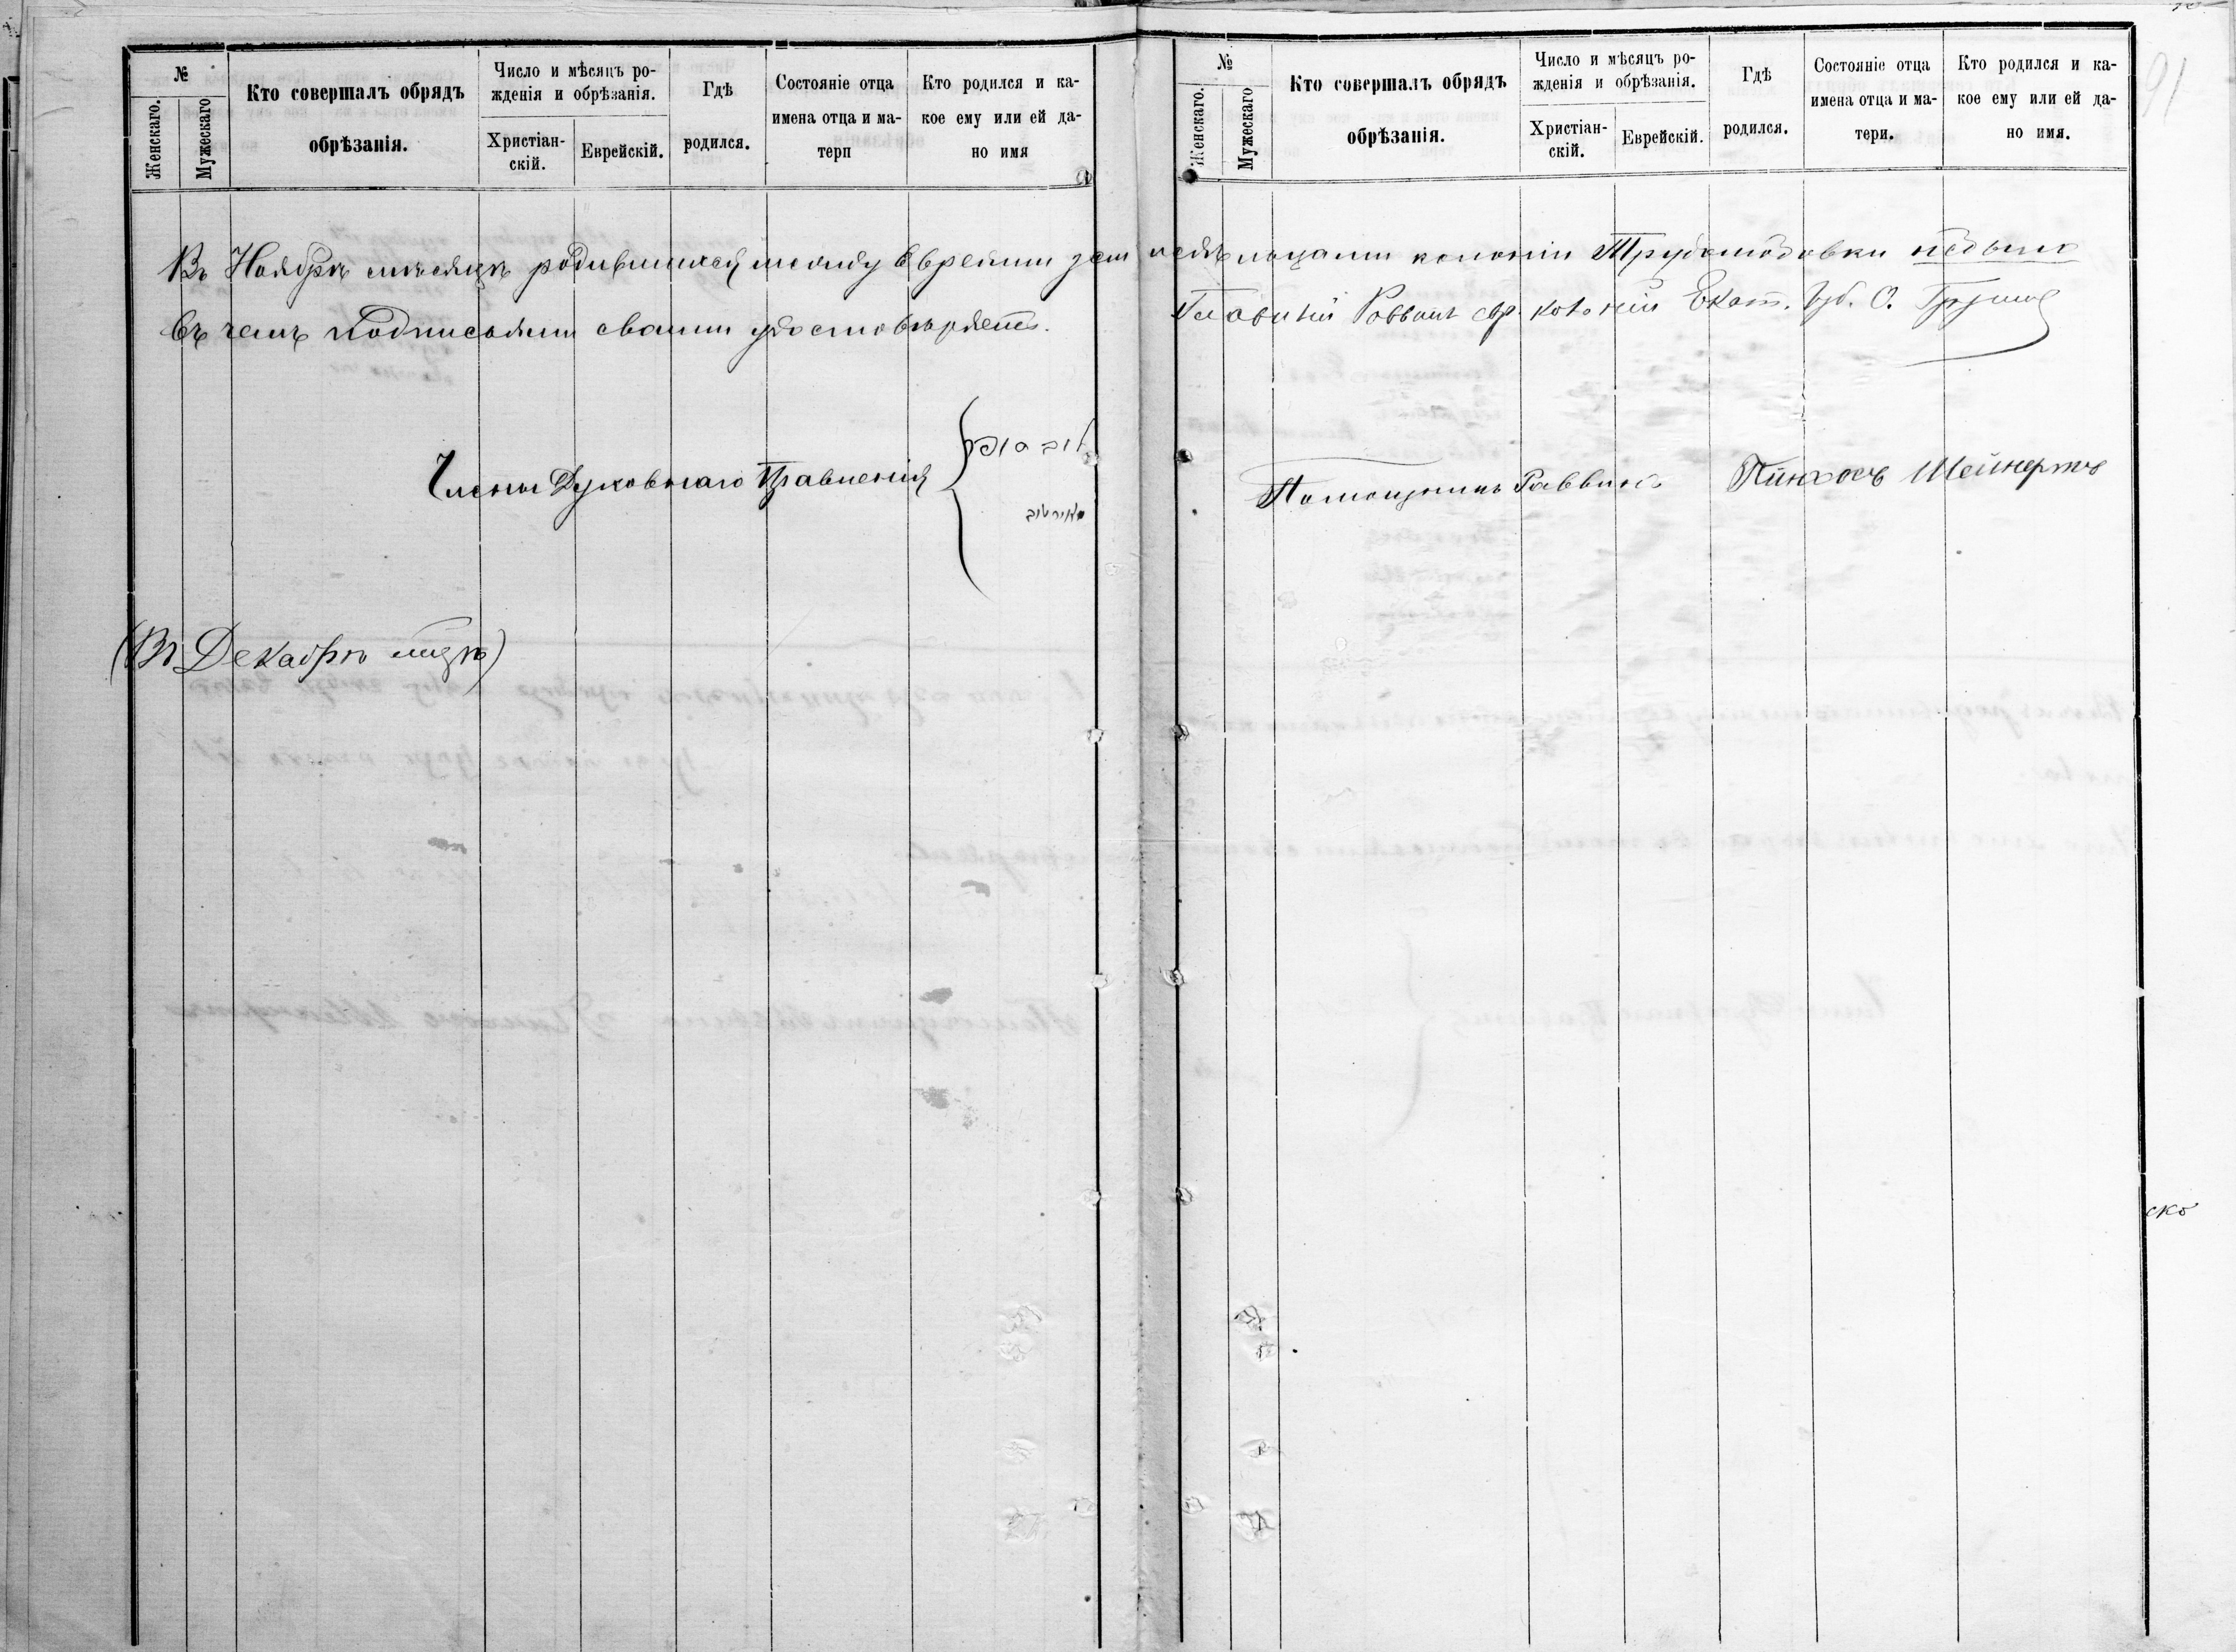 91
№
Женскаго.
Мужескаго
Кто совершалъ обрядъ
обрѣзанія.
Число и мѣсяцъ ро-
жденія и обрѣзанія.
Христіан-
скій.
Еврейскій.
Гдѣ
родился.
Состояніе отца
имена отца и ма-
терп
Кто родился и ка-
кое ему или ей да-
но имя
№
Женскаго.
Мужескаго
Кто совершалъ обрядъ
обрѣзанія.
Число и мѣсяцъ ро-
жденія и обрѣзанія.
Христіан-
скій.
Еврейскій.
Гдѣ
родился.
Состояніе отца
имена отца и ма-
тери.
Кто родился и ка-
кое ему или ей да-
но имя.
Въ Ноябрѣ мѣсяцѣ родившихся между Евреями земледѣльцами колоніи Трудолюбовки небыло
въ чемъ подписями своими удостовѣряетъ.
Главный Раввинъ евр. колоній Екат. Губ. О.
Члены Духовнаго Правленія
Помощникъ Раввина Пинхосъ Шейнертъ
(Въ Декабрѣ мцѣ)
ско